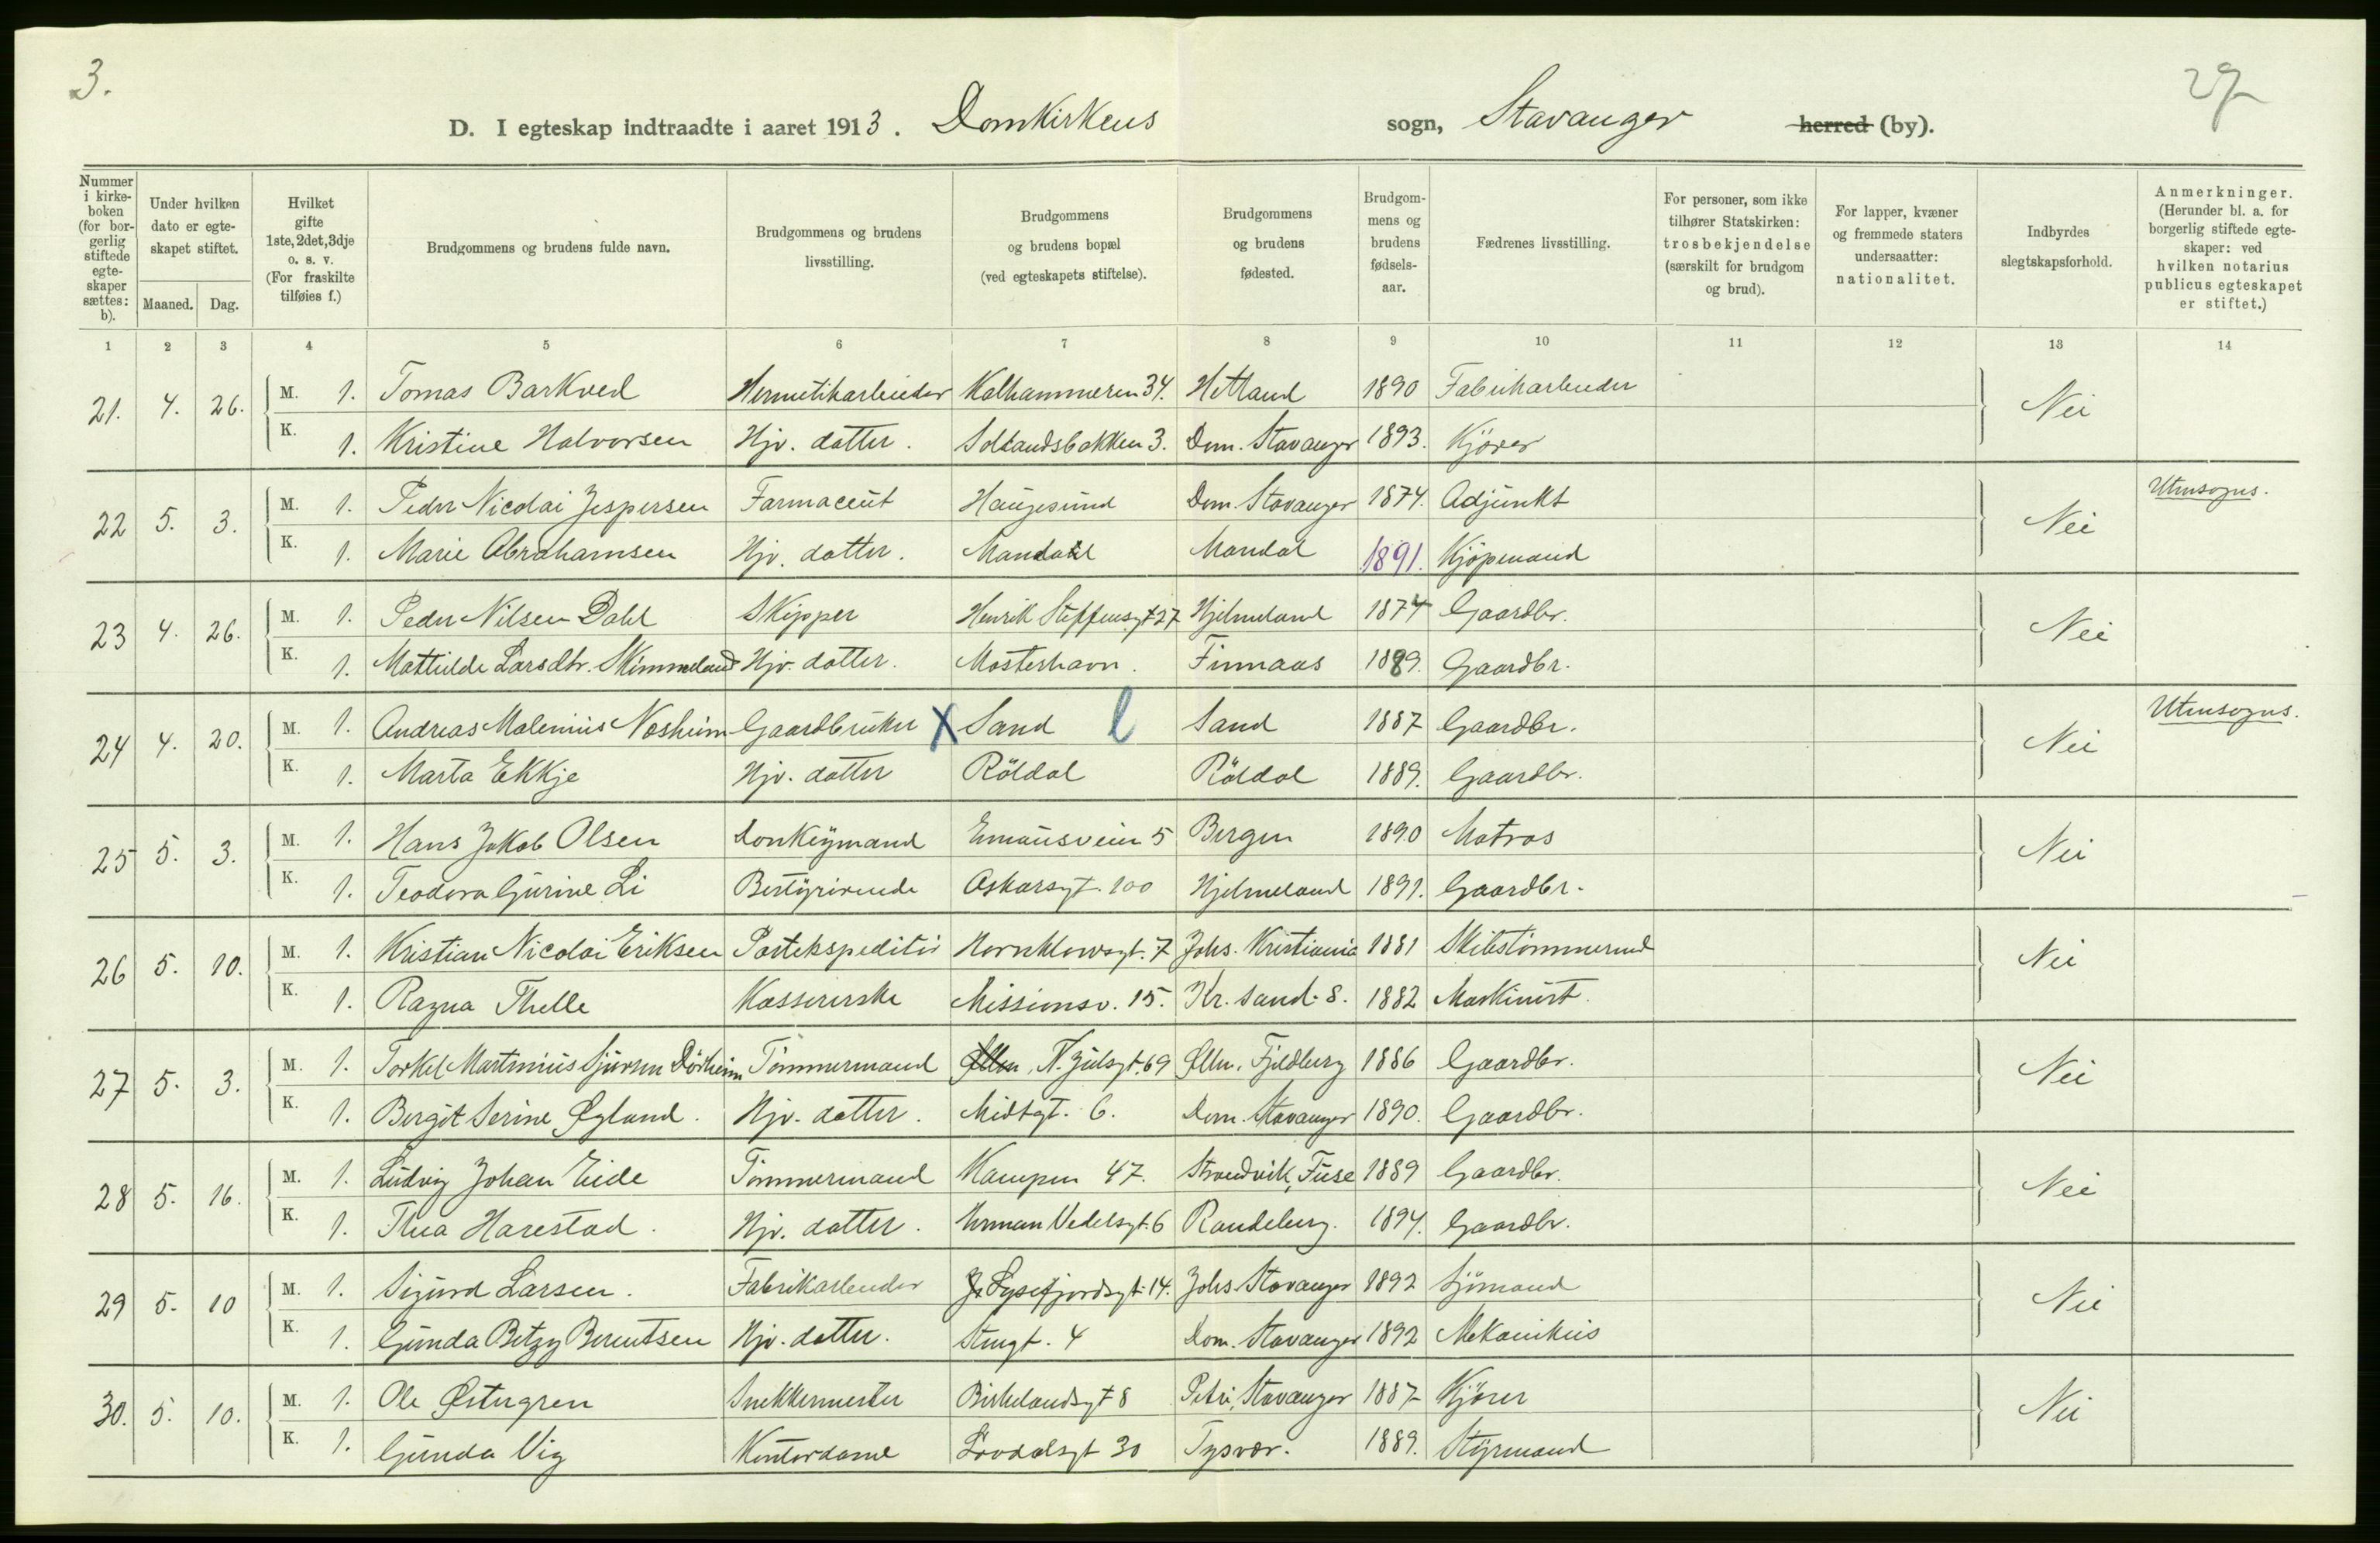 3.
27
D. I egteskap indtraadte i aaret 1913. Domkirkens sogn, Stavanger herred (by).
Nummer i kirkeboken (for borgerlig stiftede egteskaper sættes: b).
Under hvilken dato er egteskapet stiftet.
Maaned. Dag.
Hvilket gifte 1ste, 2det, 3dje o. s. v. (For fraskilte tilføies f.)
Brudgommens og brudens fulde navn.
Brudgommens og brudens livsstilling.
Brudgommens og brudens bopæl (ved egteskapets stiftelse).
Brudgommens og brudens fødested.
Brudgommens og brudens fødselsaar.
Fædrenes livsstilling.
For personer, som ikke tilhører Statskirken: trosbekjendelse (særskilt for brudgom og brud).
For lapper, kvæner og fremmede staters undersaatter: nationalitet.
Indbyrdes slegtskapsforhold.
Anmerkninger. (Herunder bl. a. for borgerlig stiftede egteskaper: ved hvilken notarius publicus egteskapet er stiftet.)
1 2 3 4 5 6 7 8 9 10 11 12 13 14
21. 4. 26. M. 1. Tomas Barkved Hermetikarbeider Kalhammeren 34. Hetland 1890 Fabrikarbeider Nei
K. 1. Kristine Halvorsen Hjv. datter. Sollandsbakken 3. Dom. Stavanger 1893. Kjører
22 5. 3. M. 1. Peder Nicolai Jespersen Farmaceut Haugesund Dom. Stavanger 1874. Adjunkt Nei Utensogns.
K. 1. Marie Abrahamsen Hjv. datter. Mandal Mandal 1891. Kjøpmand
23 4. 26. M. 1. Peder Nilsen Dahl Skipper Henrik Steffensgt 27 Hjelmeland 1874 Gaardbr. Nei
K. 1. Mathilde Larsdtr. Skimmeland Hjv. datter. Mosterhavn. Finnaas 1889. Gaardbr.
24 4. 20. M. 1. Andreas Malenius Nesheim Gaardbruker X Sand l Sand 1887 Gaardbr. Nei Utensogns.
K. 1. Marta Ekkje Hjv. datter Röldal Röldal 1889. Gaardbr.
25 5. 3. M. 1. Hans Jakob Olsen Donkeymand Emausveien 5 Bergen 1890 Matros Nei
K. 1. Teodora Gurine Li Bestyrerinde Oskarsgt. 100 Hjelmeland 1891. Gaardbr.
26 5. 10. M. 1. Kristian Nicolai Eriksen Postekspeditör Hornklovsgt. 7 Johs. Kristiania 1881 Skibstömmermd Nei
K. 1. Ragna Thelle Kassererske Missionsv. 15. Kr. sand. S. 1882 Maskinist.
27 5. 3. M. 1. Torkel Martinius Sjursen Dörheim Tömmermand Ølen, N. Julsgt. 69 Ølen, Fjeldberg 1886 Gaardbr. Nei
K. 1. Bergit Serine Øgland. Hjv. datter. Midtgt. 6. Dom. Stavanger 1890. Gaardbr.
28 5. 16. M. 1. Ludvig Johan Eide Tömmermand Kampen 47. Strandvik, Fuse 1889 Gaardbr. Nei
K. 1. Thea Harestad. Hjv. datter. Herman Vedelsgt. 6 Randeberg. 1894. Gaardbr.
29 5. 10 M. 1. Sigurd Larsen. Fabrikarbeider Lysefjordsgt. 14. Johs. Stavanger 1892 Sjömand Nei
K. 1. Gunda Betzy Berentsen Hjv. datter. Stengt. 4 Dom. Stavanger 1892 Mekanikus
30. 5. 10. M. 1. Ole Østergren Snekkermester Birkelandsgt 8 Petri, Stavanger 1887 Kjörer Nei
K. 1. Gunda Vig Kontordame Lovdalsgt 30 Tysvær. 1889. Styrmand